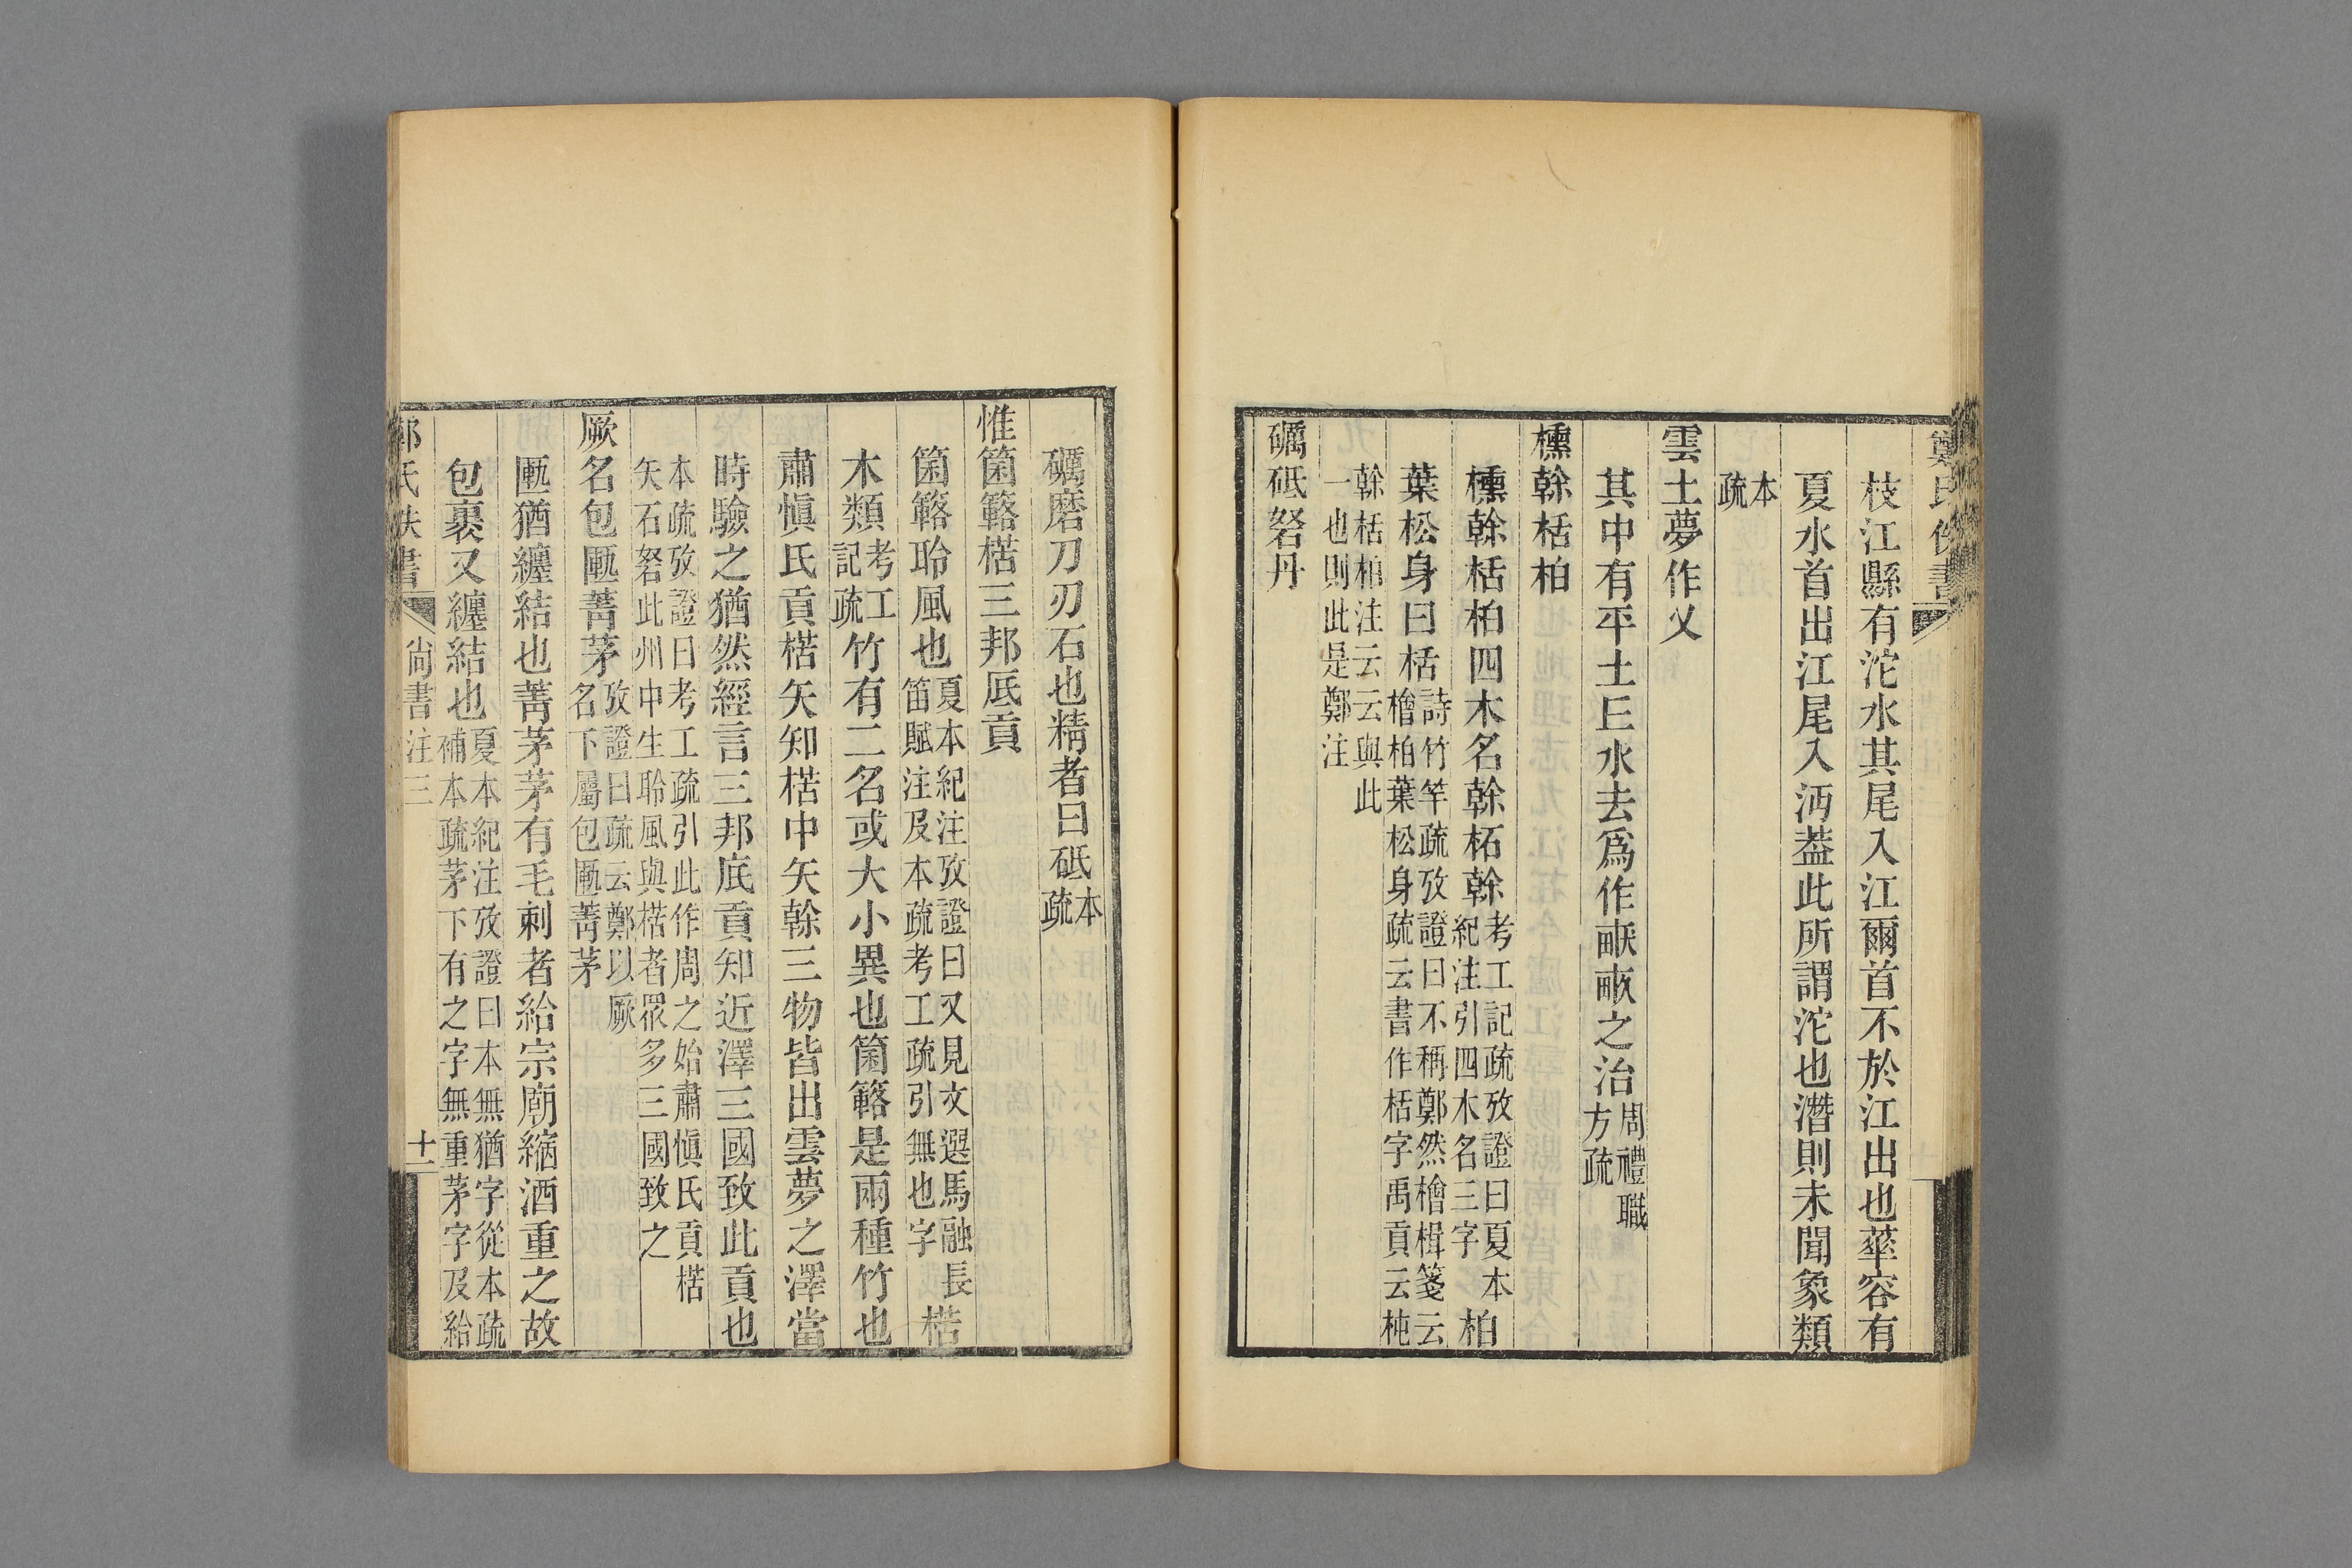 鄭氏佚書
枝江縣有沱水其尾入江爾首不於江出也華容有
夏水首出江尾入沔蓋此所謂沱也潛則未聞象類
本疏
雲土夢作乂
其中有平土丘水去爲作畎畝之治周禮職方疏
櫄榦栝柏
櫄榦栝柏四木名榦柘榦考工記疏攷證曰夏本紀注引四木名三字柏
葉松身曰栝詩竹竿疏攷證曰不稱鄭然檜楫箋云檜柏葉松身疏云書作栝字禹貢云杶
榦栝柏注云云與此一也則此是鄭注
礪砥砮丹
礪磨刀刃石也精者曰砥本疏
惟箘簵楛三邦厎貢
箘簵聆風也夏本紀注攷證曰又見文選馬融長笛賦注及本疏考工疏引無也字楛
木類考工記疏竹有二名或大小異也箘簵是兩種竹也
肅愼氏貢楛矢知楛中矢榦三物皆出雲夢之澤當
時驗之猶然經言三邦底貢知近澤三國致此貢也
本疏攷證曰考工疏引此作周之始肅愼氏貢楛矢石砮此州中生聆風與楛者眾多三國致之
厥名包匭菁茅攷證曰疏云鄭以厥名下屬包匭菁茅
匭猶纏結也菁茅茅有毛刺者給宗廟縮酒重之故
包裹又纏結也夏本紀注攷證曰本無猶字從本疏補本疏茅下有之字無重茅字及給
鄭氏佚書 尙書注三 十一